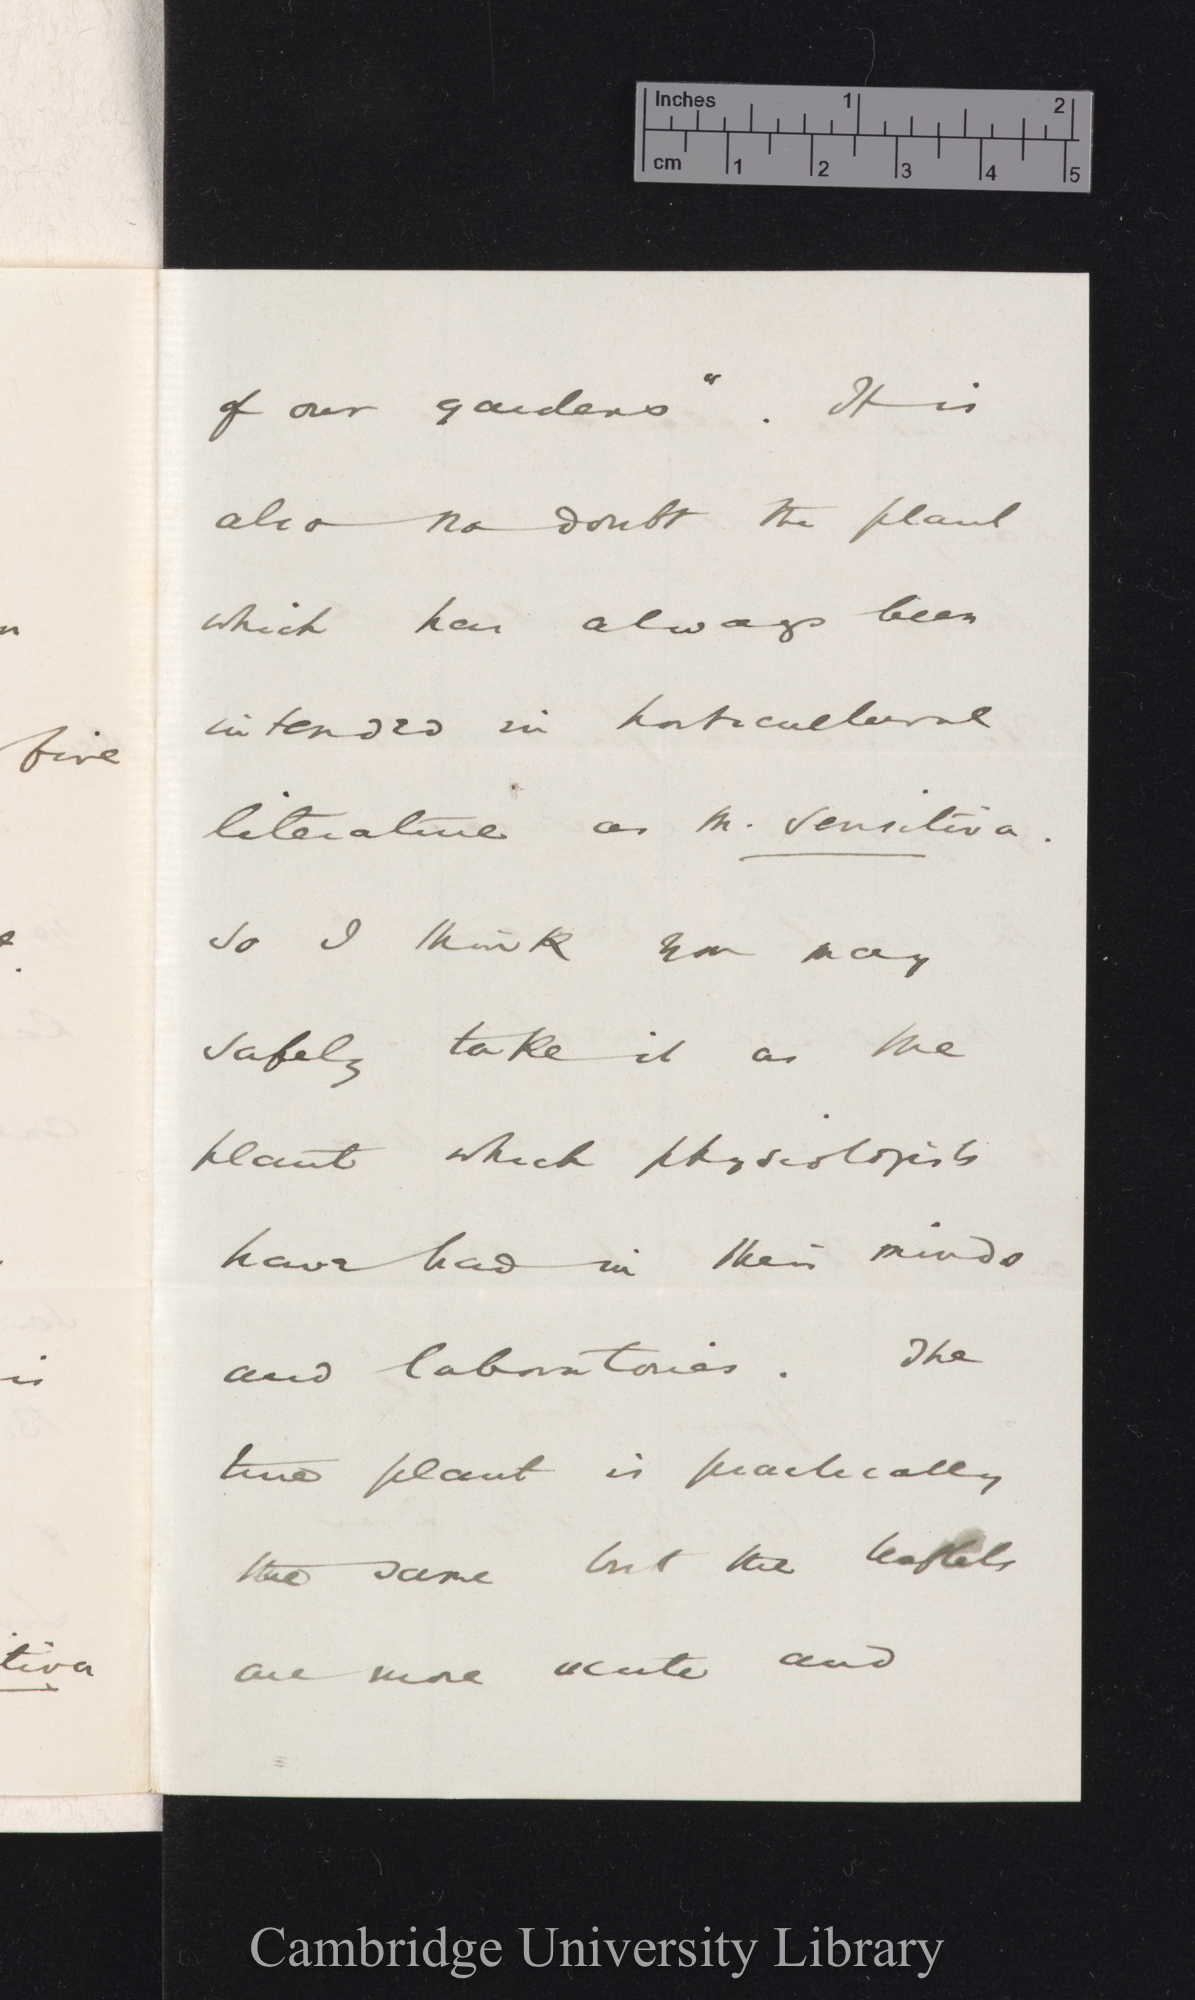 Inches 1 2
cm 1 2 3 4 5
of our gardens". It is
also no doubt the plant
which has always been
intended in horticultural
literature as M. sensitiva.
So I think you may
safely take it as the
plant which physiologists
have had in their minds
and laboratories. The
true plant is practically
the same but the leaflets
are more acute and
n
five
is
tiva
Cambridge University Library